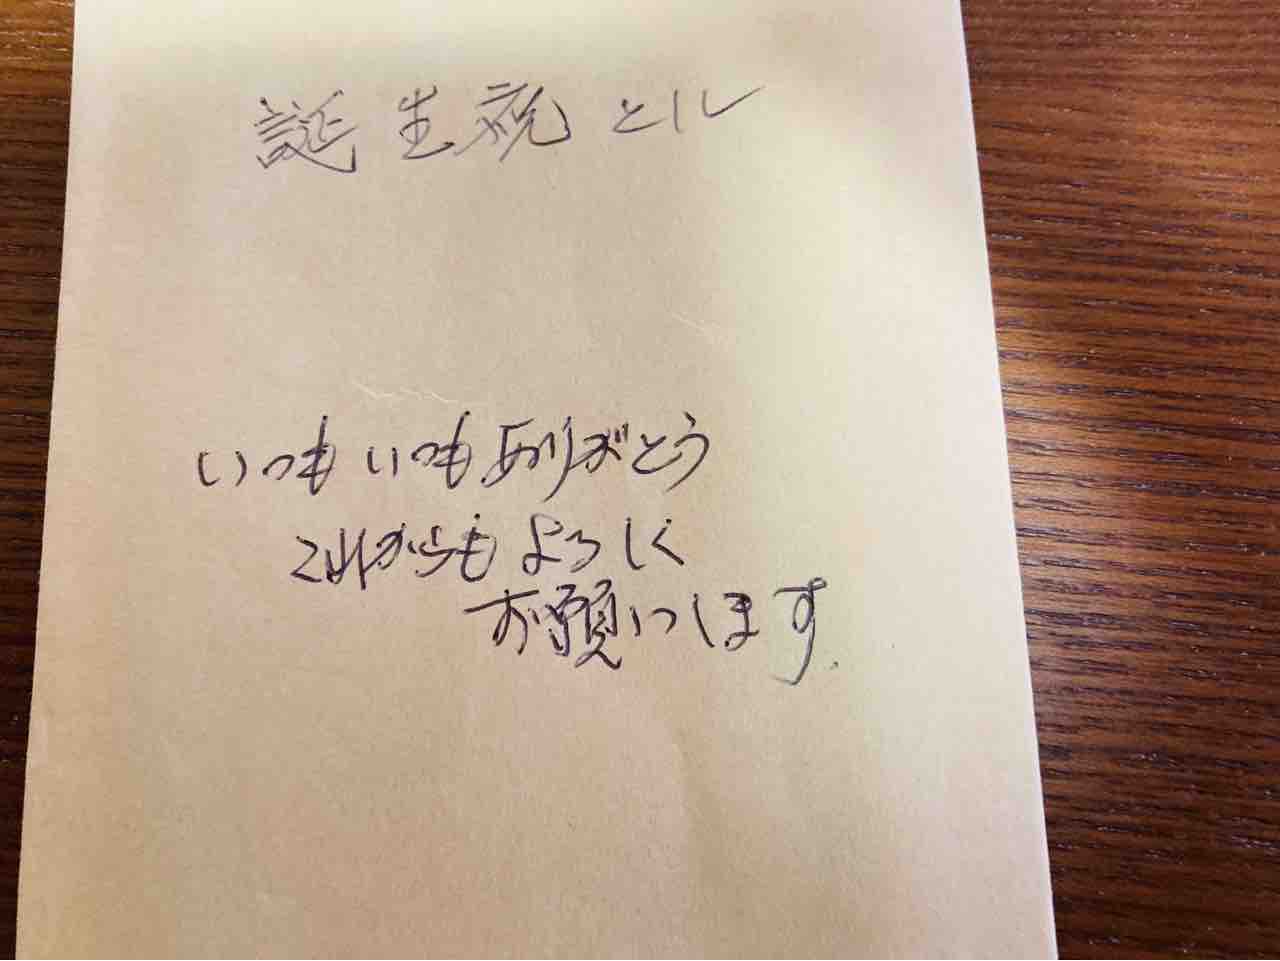 誕生祝とル
いつもいつもありがとう
これからもよろしく
お願いします.